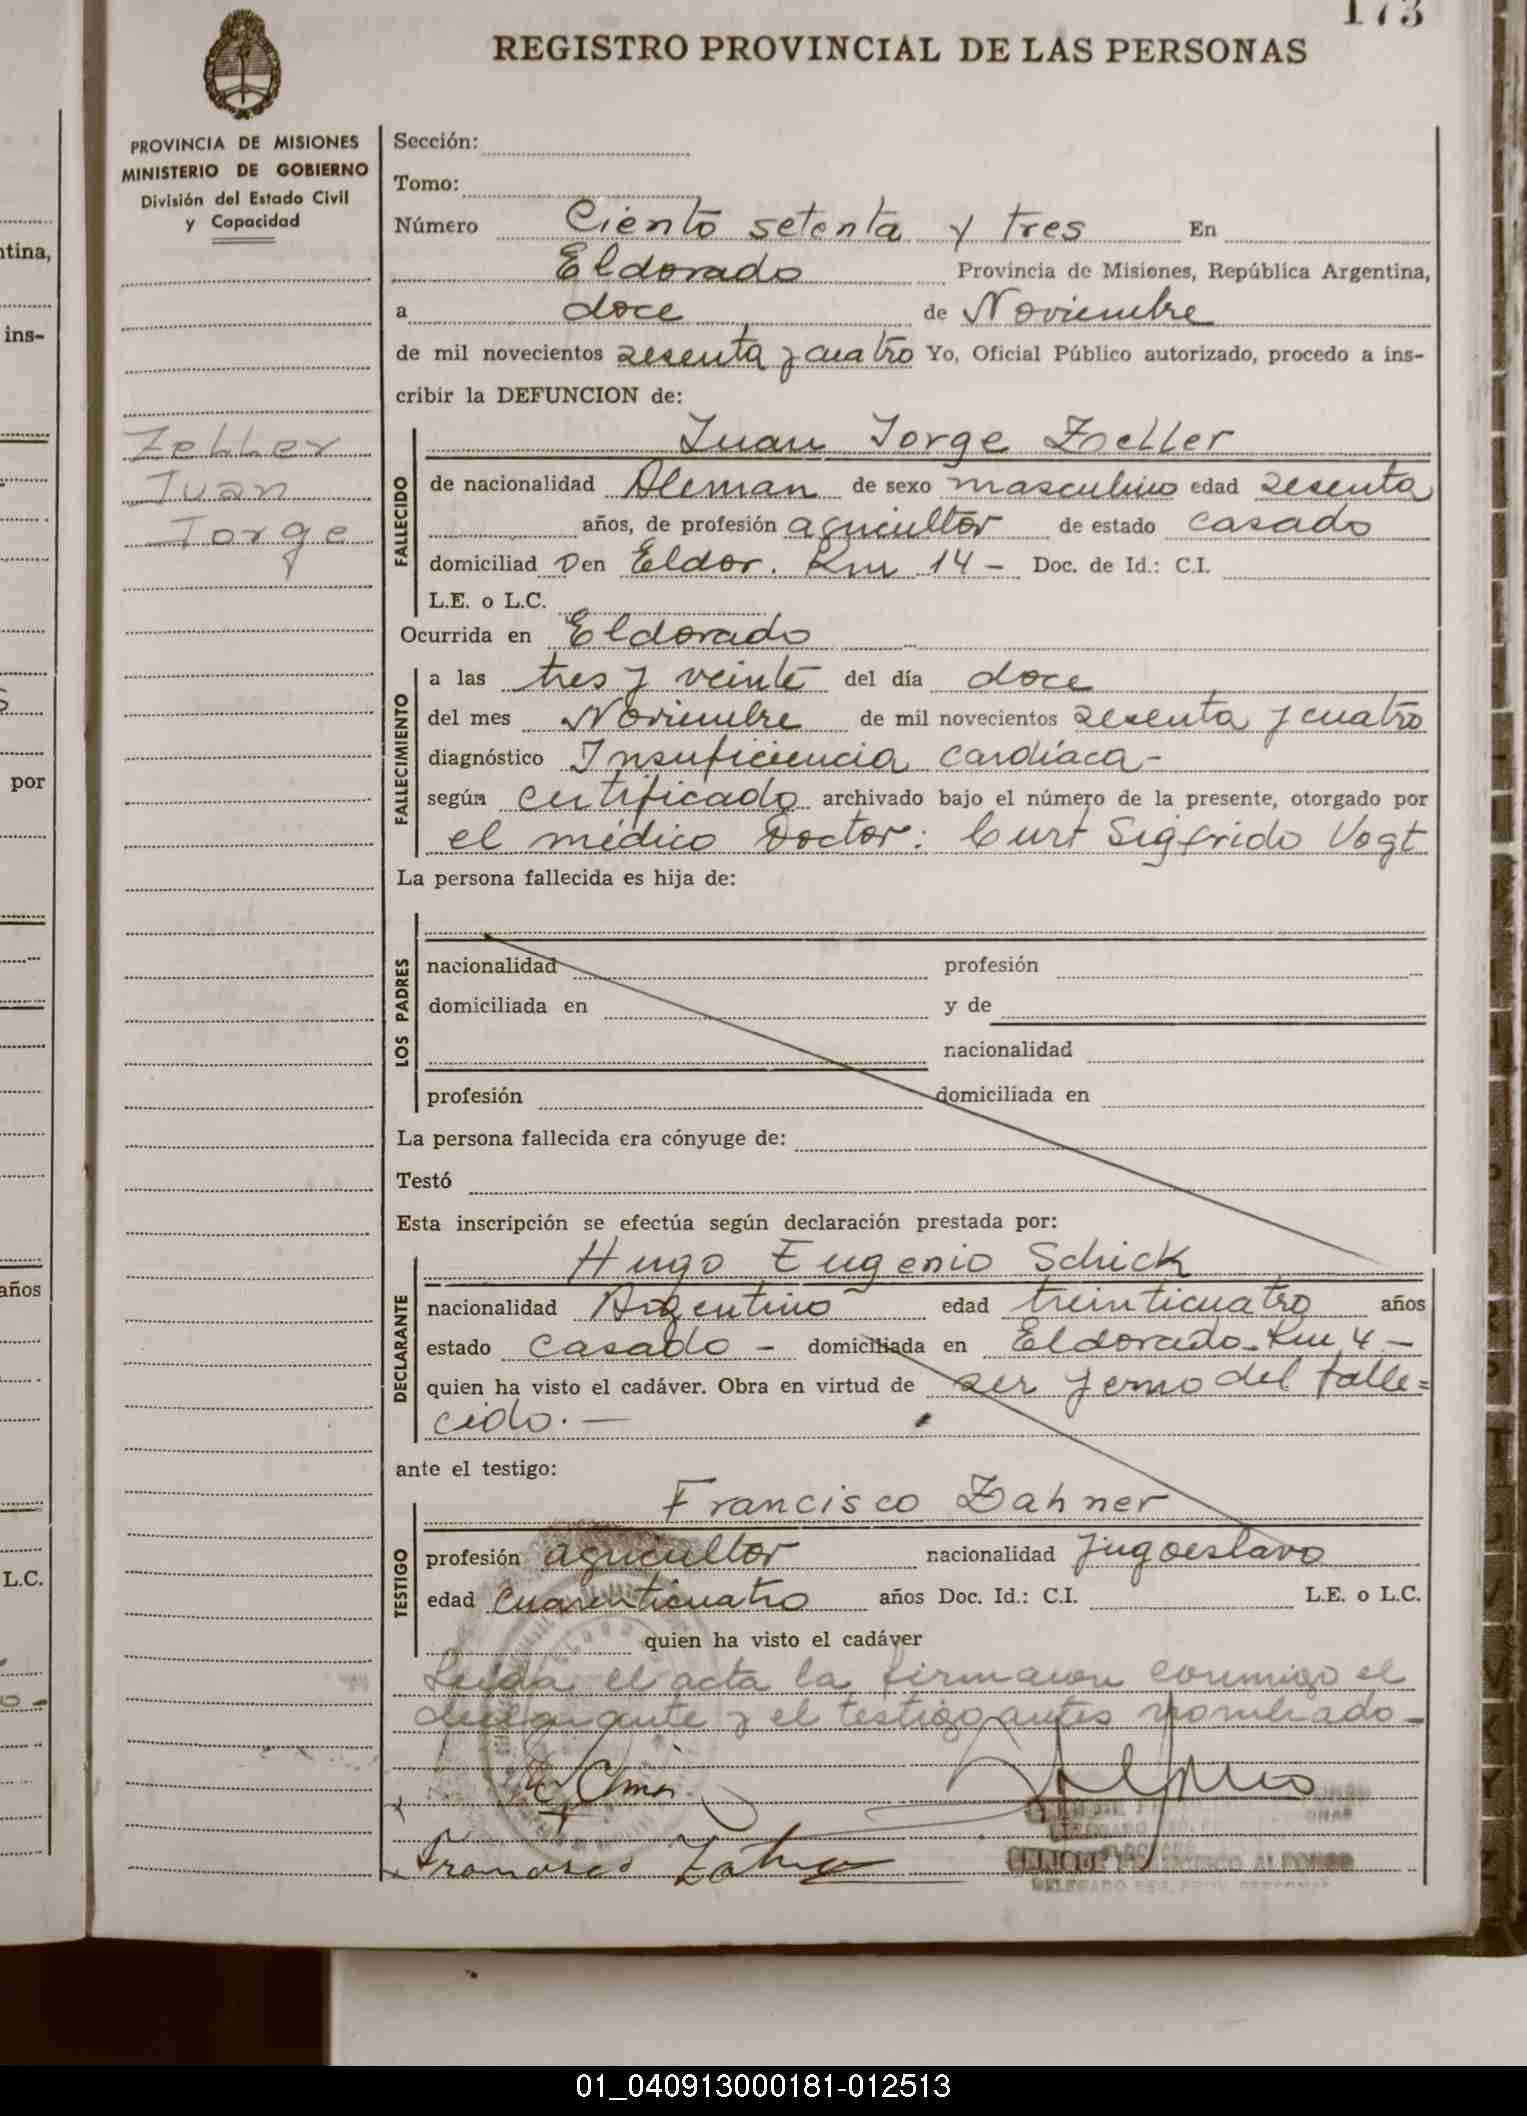 173
REGISTRO PROVINCIAL DE LAS PERSONAS
PROVINCIA DE MISIONES
MINISTERIO DE GOBIERNO
División del Estado Civil
y Capacidad
Zeller
Juan
Jorge
Sección:
Tomo:
Número Ciento setenta y tres En
Eldorado Provincia de Misiones, República Argentina,
a doce de Noviembre
de mil novecientos sesenta y cuatro Yo, Oficial Público autorizado, procedo a ins-
cribir la DEFUNCION de:
FALLECIDO
Juan Jorge Zeller
de nacionalidad Aleman de sexo masculino edad sesenta
años, de profesión agricultor de estado casado
domiciliad o en Eldor. Km 14 - Doc. de Id.: C.I.
L.E. o L.C.
Ocurrida en Eldorado
FALLECIMIENTO
a las tres y veinte del día doce
del mes Noviembre de mil novecientos sesenta y cuatro
diagnóstico Insuficiencia cardíaca -
según certificado archivado bajo el número de la presente, otorgado por
el médico Doctor: Curt Sigfrido Vogt
La persona fallecida es hija de:
LOS PADRES
nacionalidad profesión
domiciliada en y de
nacionalidad
profesión domiciliada en
La persona fallecida era cónyuge de:
Testó
Esta inscripción se efectúa según declaración prestada por:
DECLARANTE
Hugo Eugenio Schick
nacionalidad Argentino edad treinticuatro años
estado casado - domiciliada en Eldorado - Km 4 -
quien ha visto el cadáver. Obra en virtud de ser yerno del falle=
cido. -
ante el testigo:
TESTIGO
Francisco Zahner
profesión agricultor nacionalidad yugoeslavo
edad cuarenticuatro años Doc. Id.: C.I. L.E. o L.C.
quien ha visto el cadáver
Leida el acta la firmaron conmigo el
declarante y el testigo antes nombrado -
Francisco Zahner
FRANCISCO ALFONSO
DELEGADO REG. PROV. PERSONAS
tina,
ins-
por
años
L.C.
01_040913000181-012513